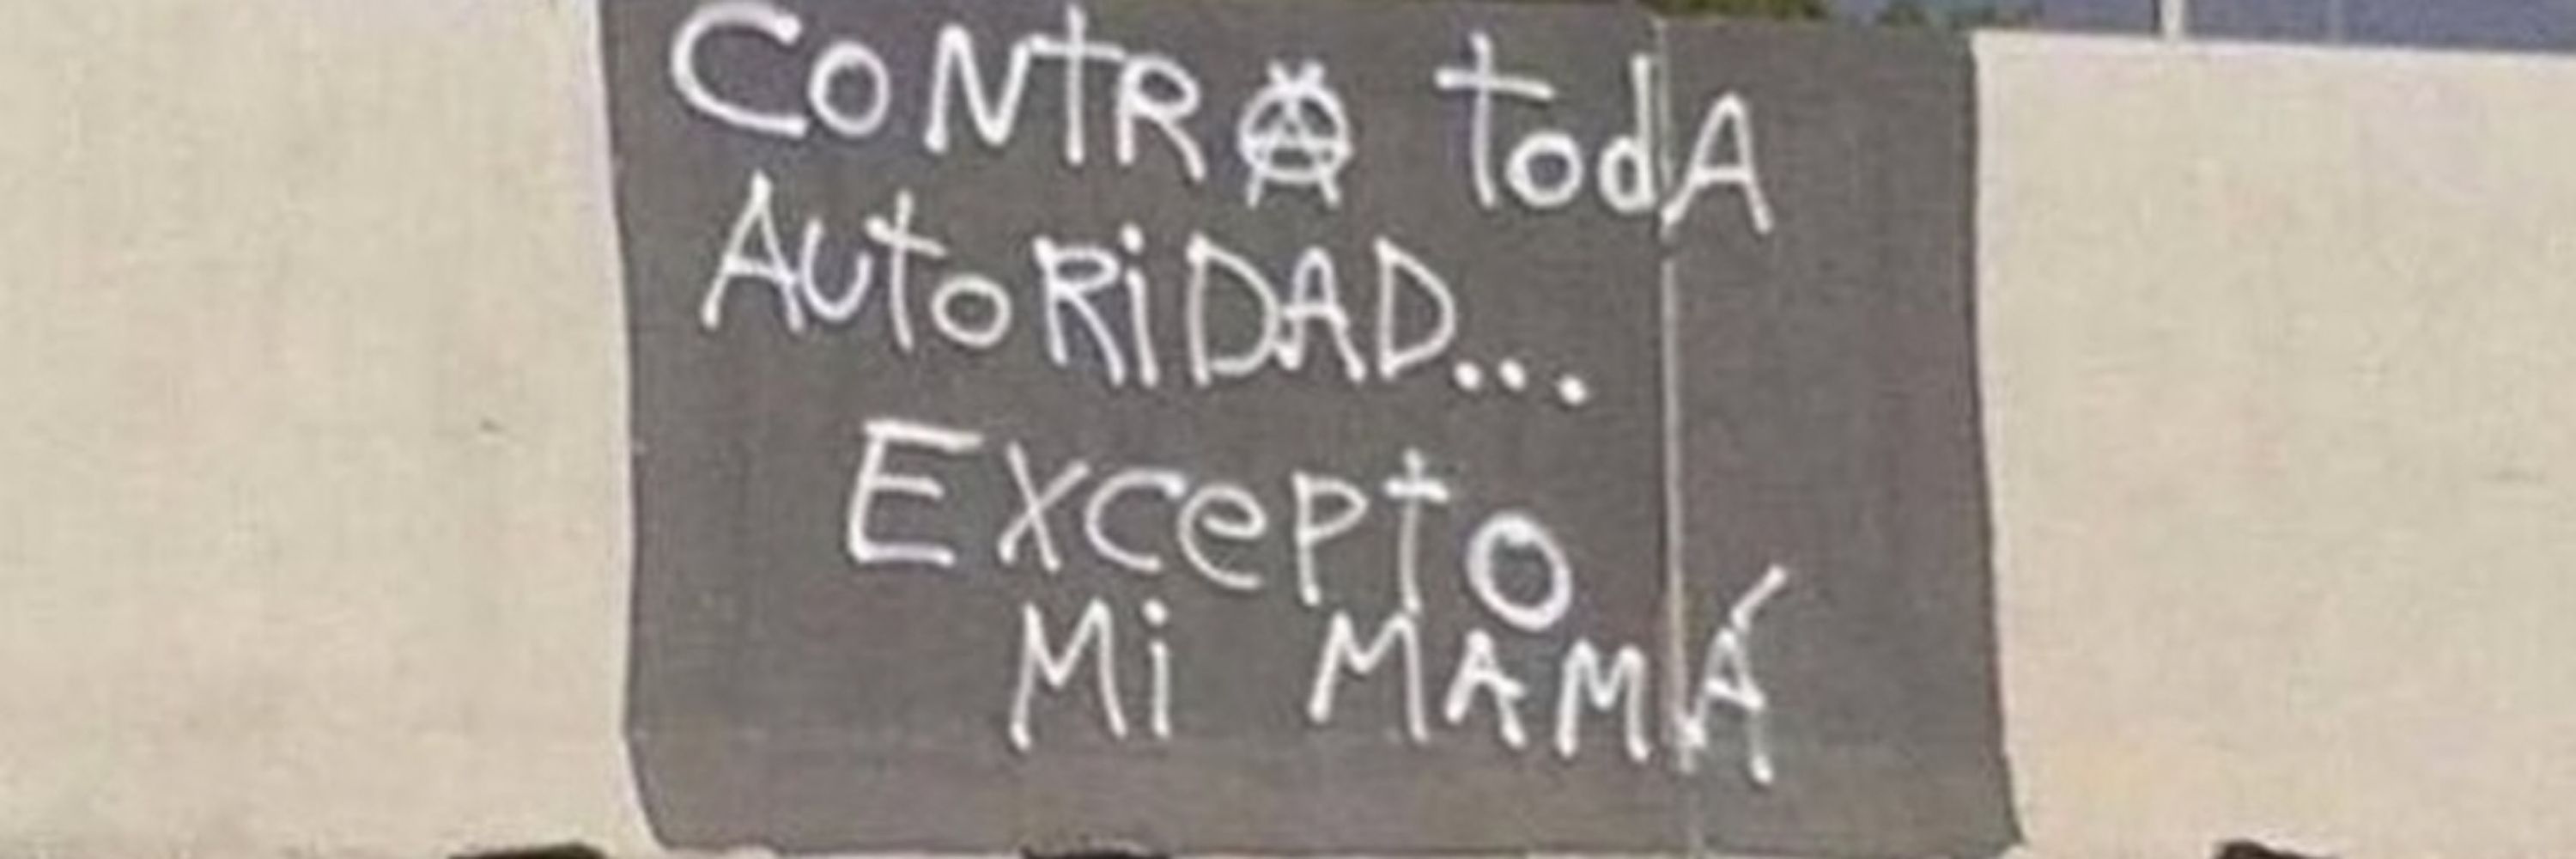 CONtRA todA
AUtoRiDAD...
Excepto
Mi MAMÁ